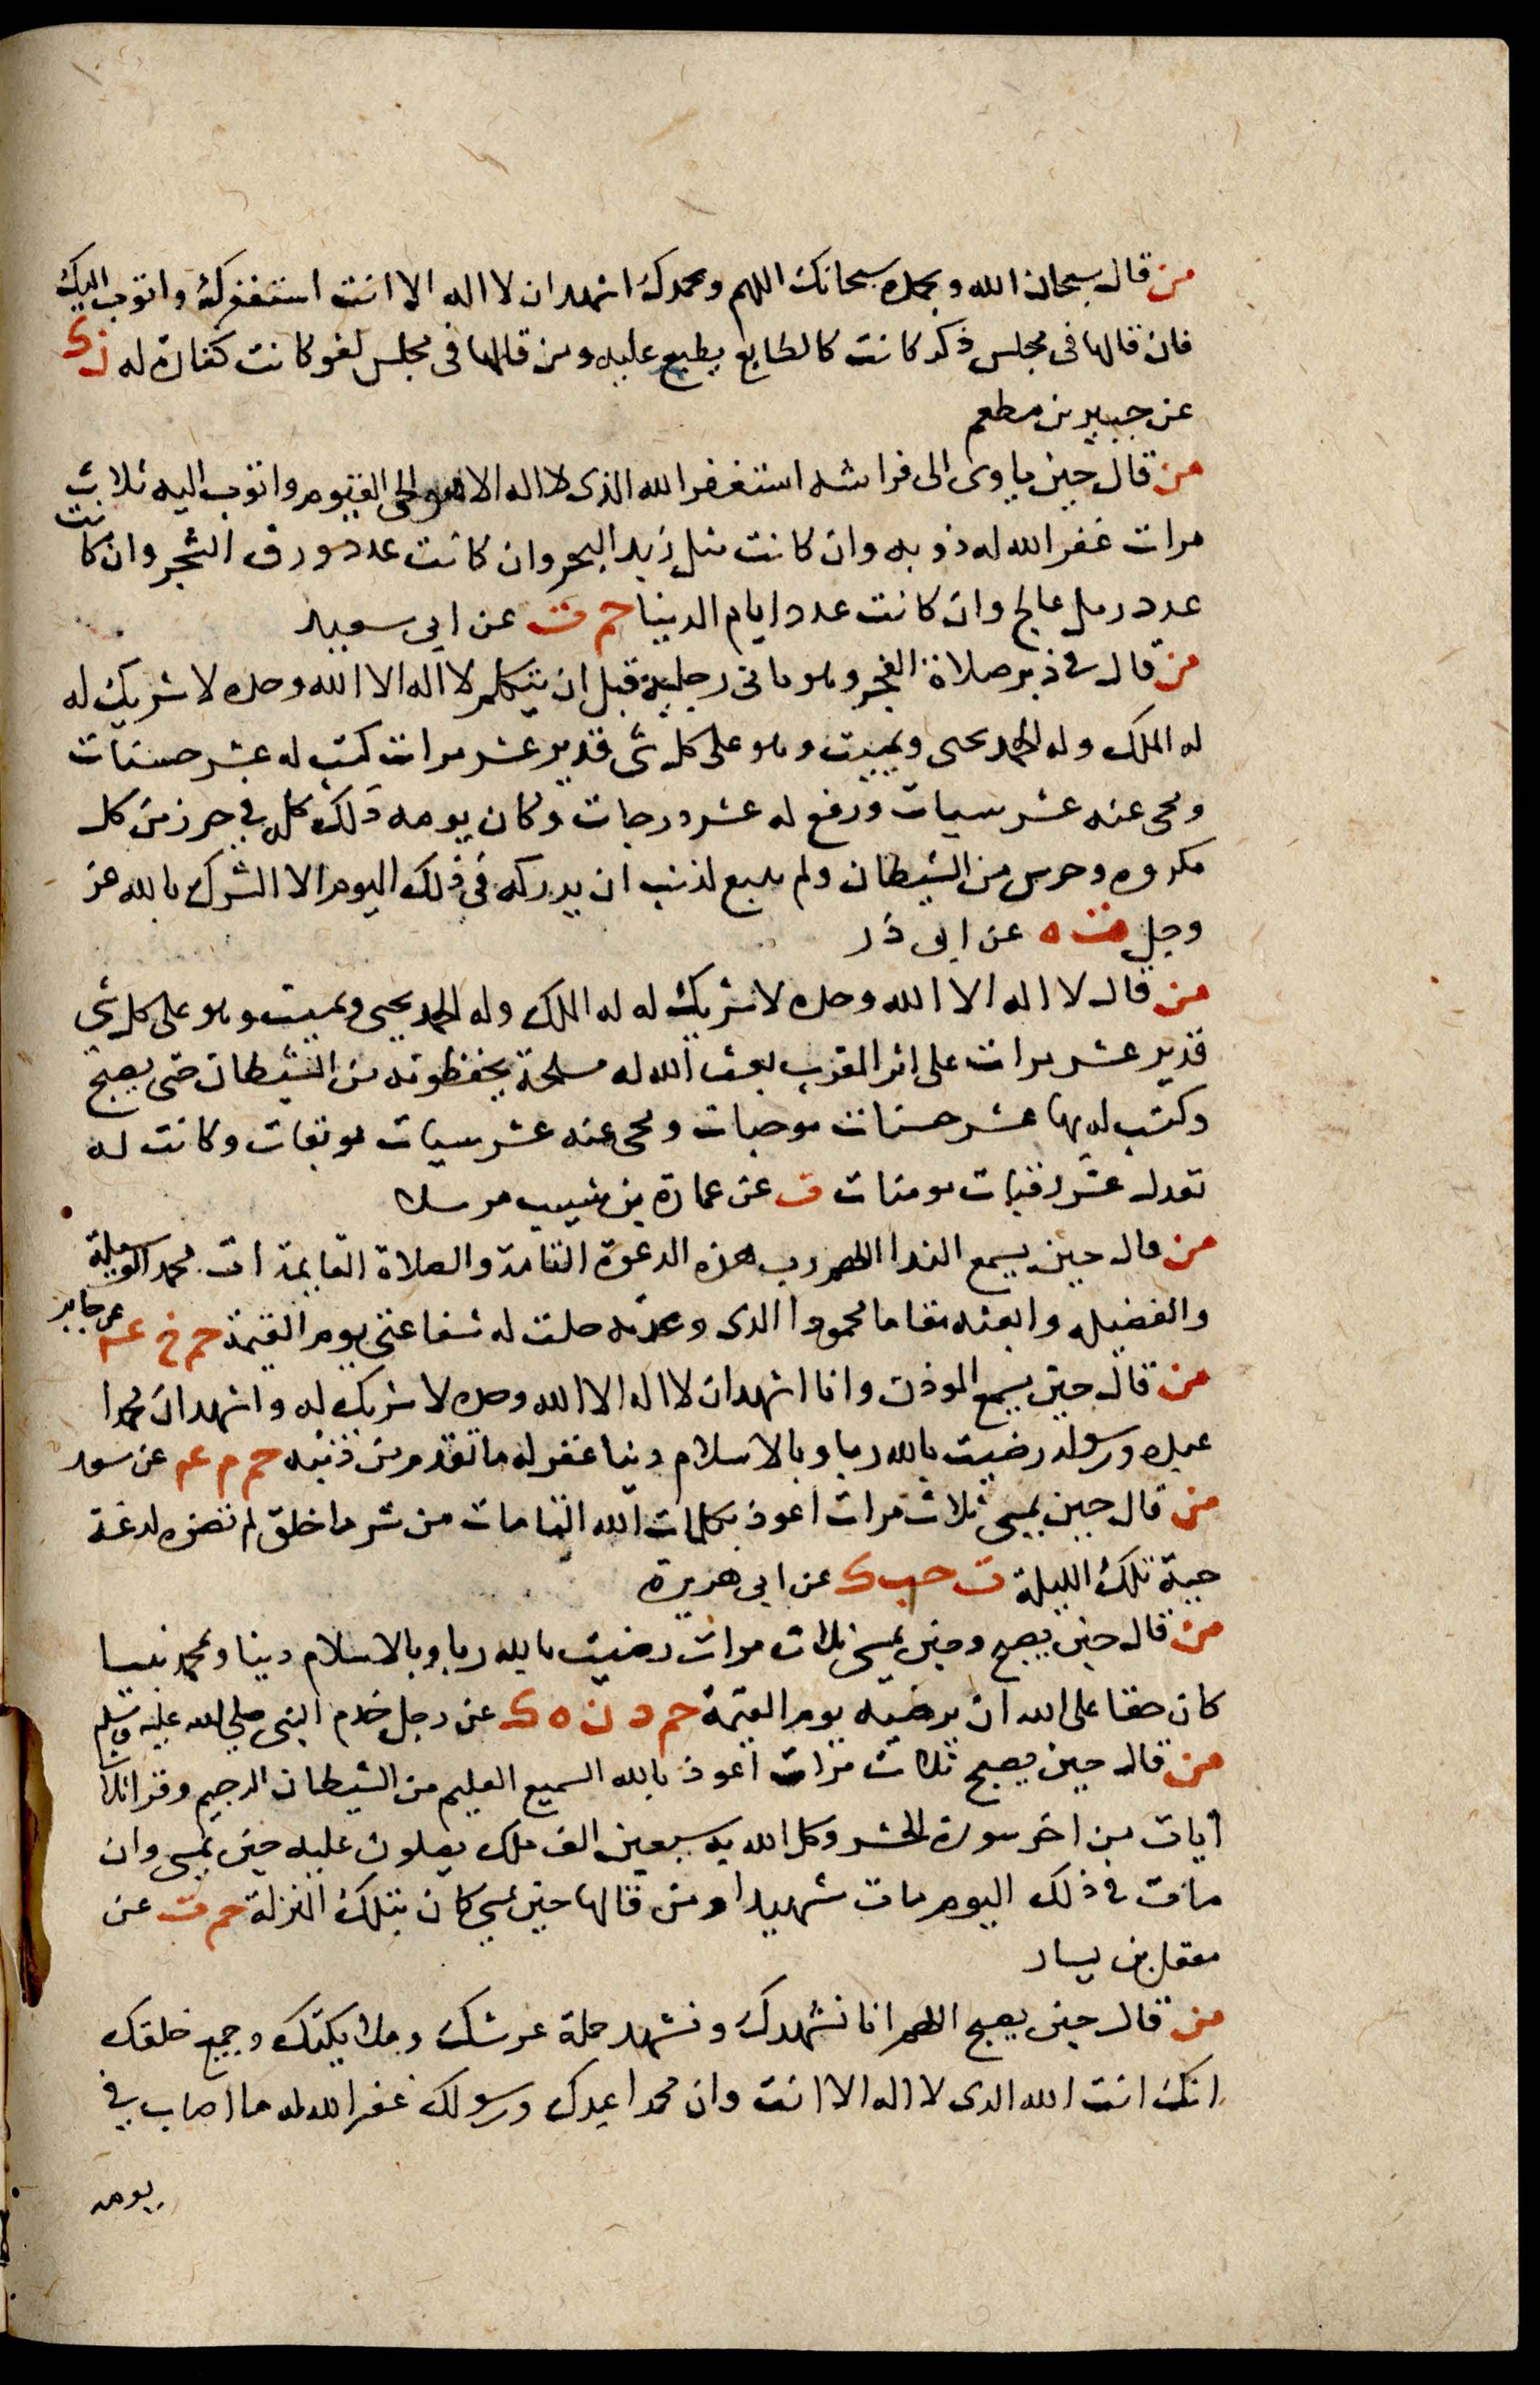 من قال سبحان الله وبحمده سبحانك اللهم وبحمدك اشهد ان لا اله الا انت استغفرك واتوب اليك
فان قالها فى مجلس ذكر كانت كالطابع يطبع عليه ومن قالها فى مجلس لغو كانت كفارة له ن ك
عن جبير بن مطعم
من قال حين ياوى الى فراشه استغفر الله الذى لا اله الا هو الحى القيوم واتوب اليه ثلاث
مرات غفر الله له ذنوبه وان كانت مثل زبد البحر وان كانت عدد ورق الشجر وان كانت
عدد رمل عالج وان كانت عدد ايام الدنيا حم ت عن ابى سعيد
من قال فى دبر صلاة الفجر وهو ثانى رجليه قبل ان يتكلم لا اله الا الله وحده لا شريك له
له الملك وله الحمد يحيى ويميت وهو على كل شى قدير عشر مرات كتب له عشر حسنات
ومحى عنه عشر سيات ورفع له عشر درجات وكان يومه ذلك كله فى حرز من كل
مكروه وحرس من الشيطان ولم ينبغ لذنب ان يدركه فى ذلك اليوم الا الشرك بالله عز
وجل ت ه عن ابى ذر
من قال لا اله الا الله وحده لا شريك له له الملك وله الحمد يحيى ويميت وهو على كل شى
قدير عشر مرات على اثر المغرب بعث الله له مسلحة يحفظونه من الشيطان حتى يصبح
وكتب له بها عشر حسنات موجبات ومحى عنه عشر سيات موبقات وكانت له
تعدل عشر رقبات مومنات ت عن عمارة بن شبيب مرسلا
من قال حين يسمع الندا اللهم رب هذه الدعوة التامة والصلاة القايمة ات محمد الوسيلة
والفضيله وابعثه مقاما محمودا الذى وعدته حلت له شفاعتى يوم القيمة حم خ عم عن جابر
من قال حين يسمع الموذن وانا اشهد ان لا اله الا الله وحده لا شريك له واشهد ان محمدا
عبده ورسوله رضيت بالله ربا وبالاسلام دينا غفر له ما تقدم من ذنبه حم م عم عن سعد
من قال حين يمسى ثلاث مرات اعوذ بكلمات الله التامات من شر ما خلق لم تضره لدغة
حية تلك الليلة ت حب ك عن ابى هريرة
من قال حين يصبح وحين يمسى ثلاث مرات رضيت بالله ربا وبالاسلام دينا وبمحمد نبيا
كان حقا على الله ان يرضيه يوم القيمة حم د ن ه ك عن رجل خدم النبى صلى الله عليه وسلم
من قال حين يصبح ثلاث مرات اعوذ بالله السميع العليم من الشيطان الرجيم وقرا ثلاث
ايات من اخر سورة الحشر وكل الله به سبعين الف ملك يصلون عليه حين يمسى وان
مات فى ذلك اليوم مات شهيدا ومن قالها حين يمسى كان بتلك المنزلة حم ت عن
معقل بن يسار
من قال حين يصبح اللهم انا نشهدك ونشهد حملة عرشك وملايكتك وجميع خلقك
انك انت الله الذى لا اله الا انت وان محمدا عبدك ورسولك غفر الله له ما اصاب فى
يومه